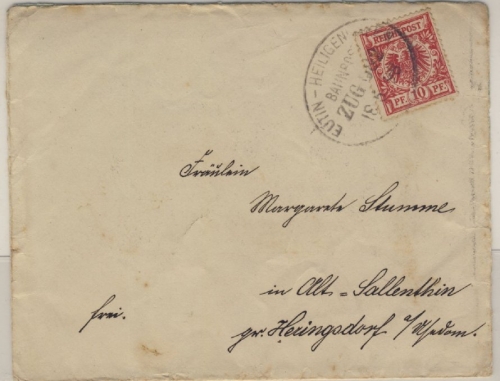 EUTIN - HEILIGEN
BAHNPOST
ZUG
REICHSPOST
PF 10 PF
Fräulein
Margarete Stumme
in Alt-Sallenthin
frei.
pr. Heringsdorf a/Usedom.